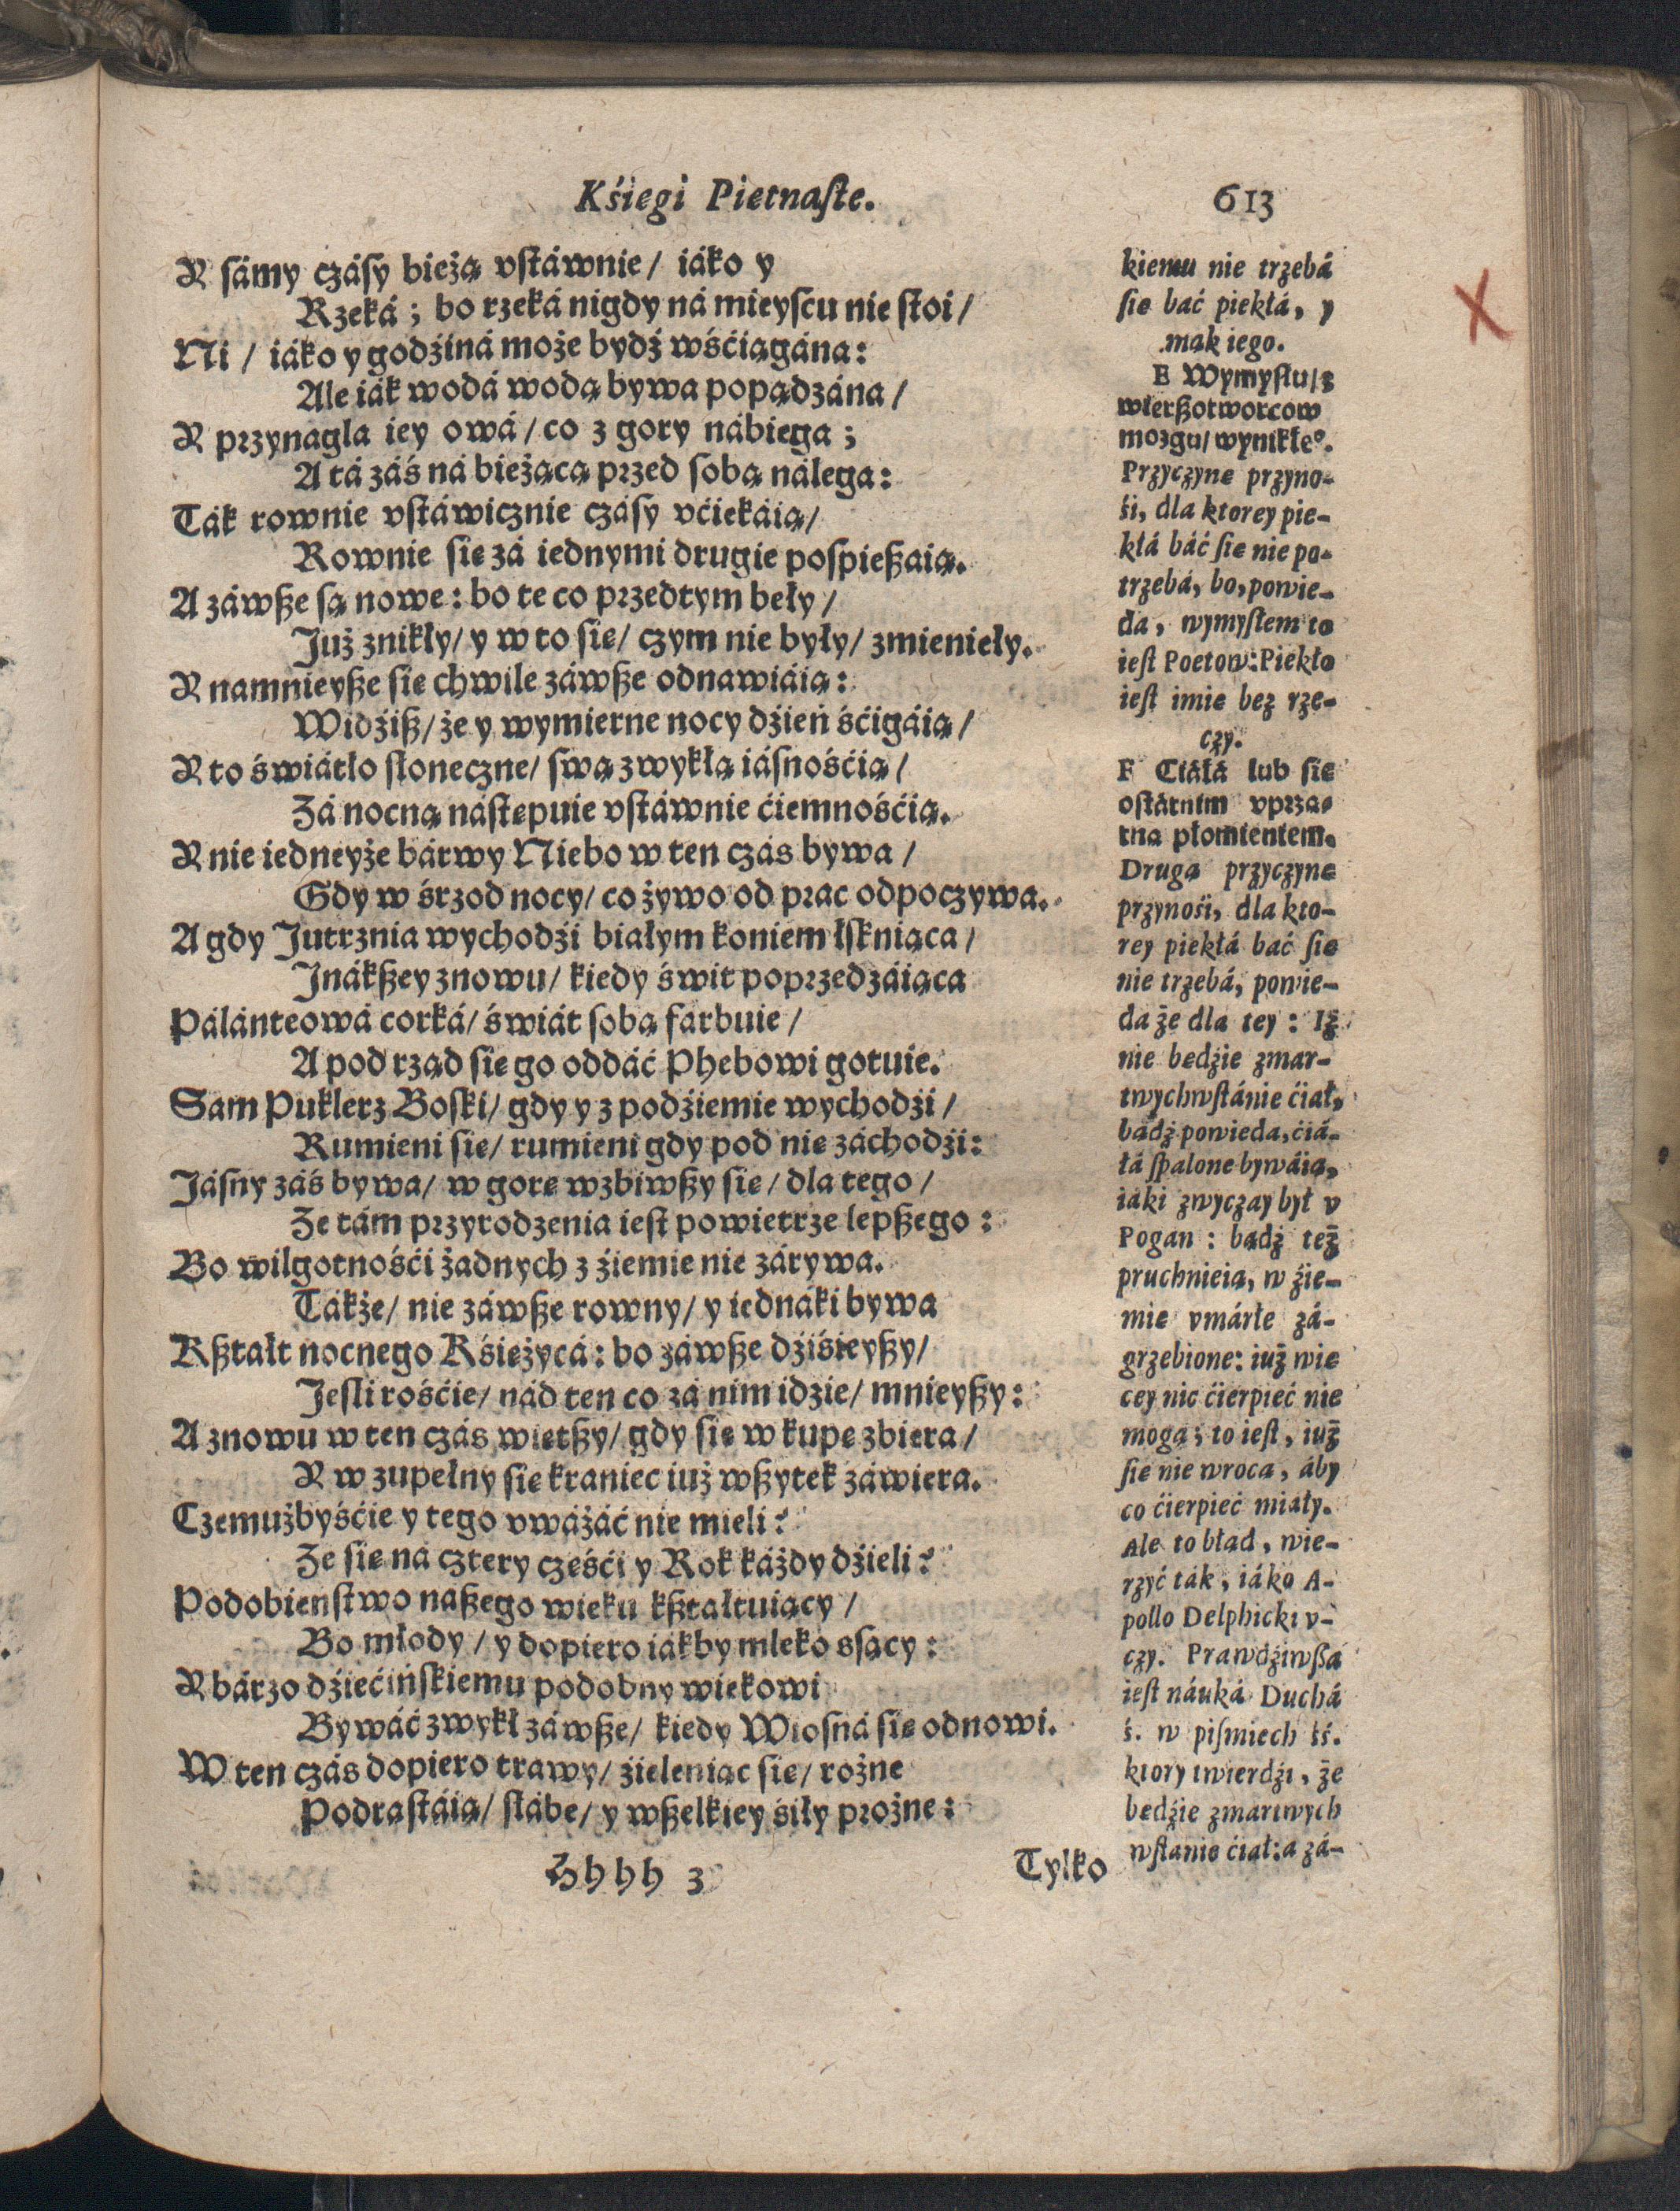 Kśiegi Pietnaſte.
613
Y sámy czáſy bieżą vſtáwnie/ iáko y
Rzeká; bo rzeká nigdy ná mieyſcu nie ſtoi/
Ni/ iáko y godźiná może bydź wśćiągána:
Ale iák wodá wodą bywa popądzána/
Y przynagla iey owá/ co z gory nábiega;
A tá záś ná bieżącą przed ſobą nálega:
Ták rownie vſtáwicznie czáſy vćiekáią/
Rownie ſie zá iednymi drugie poſpießaią.
A záwße ſą nowe: bo te co przedtym beły/
Już znikły/ y w to ſie/ czym nie były/ zmienieły.
Y namnieyße ſie chwile záwße odnawiáią:
Widźiß/ że y wymierne nocy dźień śćigáią/
Y to świátło ſłoneczne/ ſwą zwykłą iáſnośćią/
Zá nocną náſtępuie vſtáwnie ćiemnośćią.
Y nie iedneyże bárwy Niebo w ten czás bywa/
Gdy w śrzod nocy/ co żywo od prac odpoczywa.
A gdy Jutrznia wychodźi białym koniem łſkniąca/
Jnákßey znowu/ kiedy świt poprzedzáiąca
Pálánteowá corká/ świát ſobą fárbuie/
A pod rząd ſie go oddáć Phebowi gotuie.
Sam Puklerz Boſki/ gdy y z podźiemie wychodźi/
Rumieni ſie/ rumieni gdy pod nie záchodźi:
Jáſny záś bywa/ w gorę wzbiwßy ſie/ dla tego/
Że tám przyrodzenia ieſt powietrze lepßego:
Bo wilgotnośći żadnych z źiemie nie zárywa.
Tákże/ nie záwße rowny/ y iednáki bywa
Kßtałt nocnego Kśiężycá: bo záwße dźiśieyßy/
Jeſli rośćie/ nád ten co zá nim idzie/ mnieyßy:
A znowu w ten czás więtßy/ gdy ſie w kupę zbiera/
Y w zupełny ſie kraniec iuż wßytek záwiera.
Czemużbyśćie y tego vważáć nie mieli?
Że ſie ná cztery częśći y Rok káżdy dźieli?
Podobieńſtwo náßego wieku kßtałtuiący/
Bo młody/ y dopiero iákby mleko sſący:
Y bárzo dźiećińſkiemu podobny wiekowi
Bywáć zwykł záwße/ kiedy Wioſná ſie odnowi.
W ten czás dopiero trawy/ źieleniąc ſie/ rożne
Podraſtáią/ ſłábe/ y wßelkiey śiły prożne:
Hhhh 3
Tylko
kiemu nie trzebá
ſie bać piekłá, y
mąk iego.
E Wymyſłu/ z
wierßotworcow
mozgu/ wynikłeº.
Przyczynę przyno-
śi, dla ktorey pie-
kłá báć ſie nie po-
trzebá, bo, powie-
da, wymyſłem to
ieſt Poetow: Piekło
ieſt imie bez rze-
czy.
F Ciáłá lub ſie
oſtátnim vprzą-
tną płomieniem.
Drugą przyczynę
przynośi, dla kto-
rey piekłá bać ſie
nie trzebá, powie-
da że dla tey: Iż
nie będźie zmar-
twychwſtánie ćiał,
bądź powieda, ćiá-
łá ſpalone bywáią,
iáki zwyczay był v
Pogan: bądź też
pruchnieią, w źie-
mie vmárłe zá-
grzebione: iuż wię
cey nic ćierpieć nie
mogą; to ieſt, iuż
ſie nie wrocą, áby
co ćierpieć miáły.
Ale to błąd, wie-
rzyć ták, iáko A-
pollo Delphicki v-
czy. Prawdźiwßa
ieſt náuká Duchá
ś. w piſmiech śś.
ktory twierdźi, że
będźie zmartwych
wſtanie ćiał: a zá-